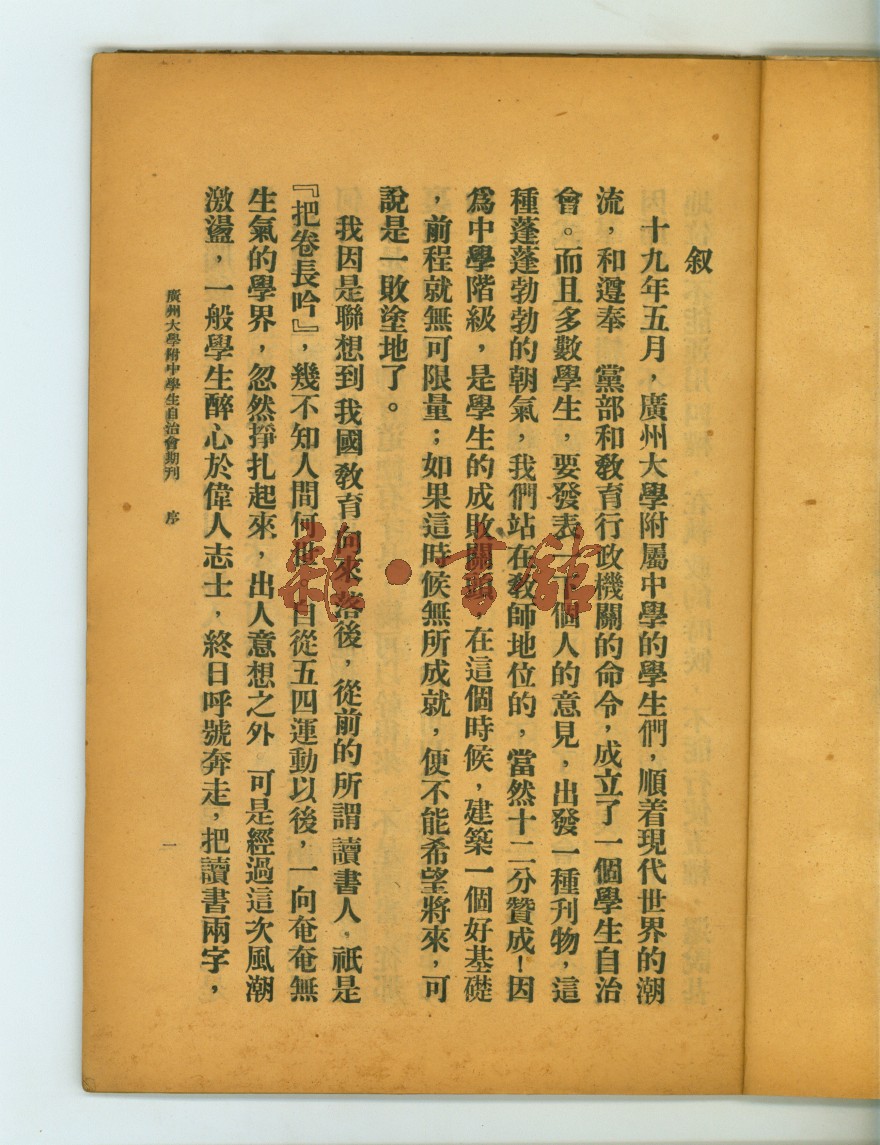 叙
十九年五月，廣州大學附屬中學的學生們，順着現代世界的潮
流，和遵奉　黨部和教育行政機關的命令，成立了一個學生自治
會。而且多數學生，要發表一下個人的意見，出發一種刊物，這
種蓬蓬勃勃的朝氣，我們站在教師地位的，當然十二分贊成！因
爲中學階級，是學生的成敗關頭，在這個時候，建築一個好基礎
，前程就無可限量；如果這時候無所成就，便不能希望將來，可
說是一敗塗地了。
我因是聯想到我國教育向來落後，從前的所謂讀書人，祇是
『把卷長吟』，幾不知人間何世。自從五四運動以後，一向奄奄無
生氣的學界，忽然掙扎起來，出人意想之外。可是經過這次風潮
激盪，一般學生醉心於偉人志士，終日呼號奔走，把讀書兩字，
廣州大學附中學生自治會期刊　序
一
雅·書館